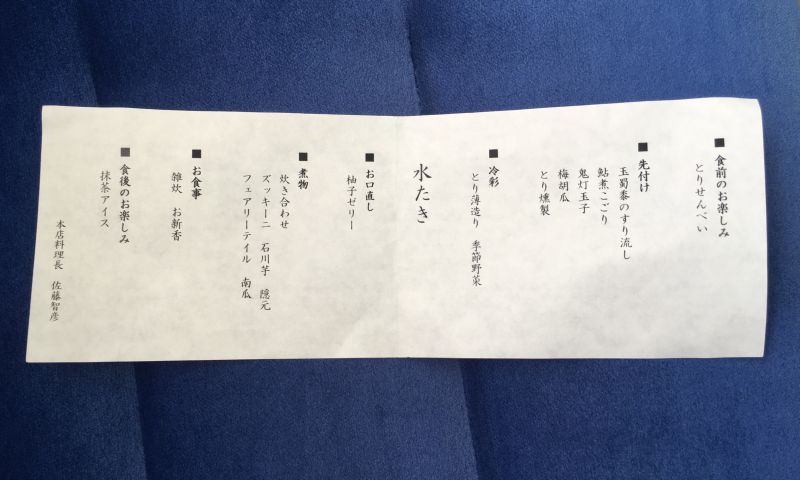 ■ 食前のお楽しみ
とりせんべい
■ 先付け
玉蜀黍のすり流し
鮎煮こごり
鬼灯玉子
梅胡瓜
とり燻製
■ 冷彩
とり薄造り 季節野菜
水たき
■ お口直し
柚子ゼリー
■ 煮物
炊き合わせ
ズッキーニ 石川芋 隠元
フェアリーテイル 南瓜
■ お食事
雑炊 お新香
■ 食後のお楽しみ
抹茶アイス
本店料理長 佐藤智彦